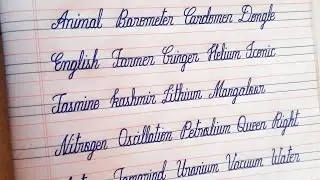 Animal Barometer Cardomen Dongle
English Farmer Ginger Helium Iconic
Jasmine Kashmir Lithium Mangalour
Nitrogen Oscillation Petrolium Queen Right
Tamarind Uranium Vacuum Water